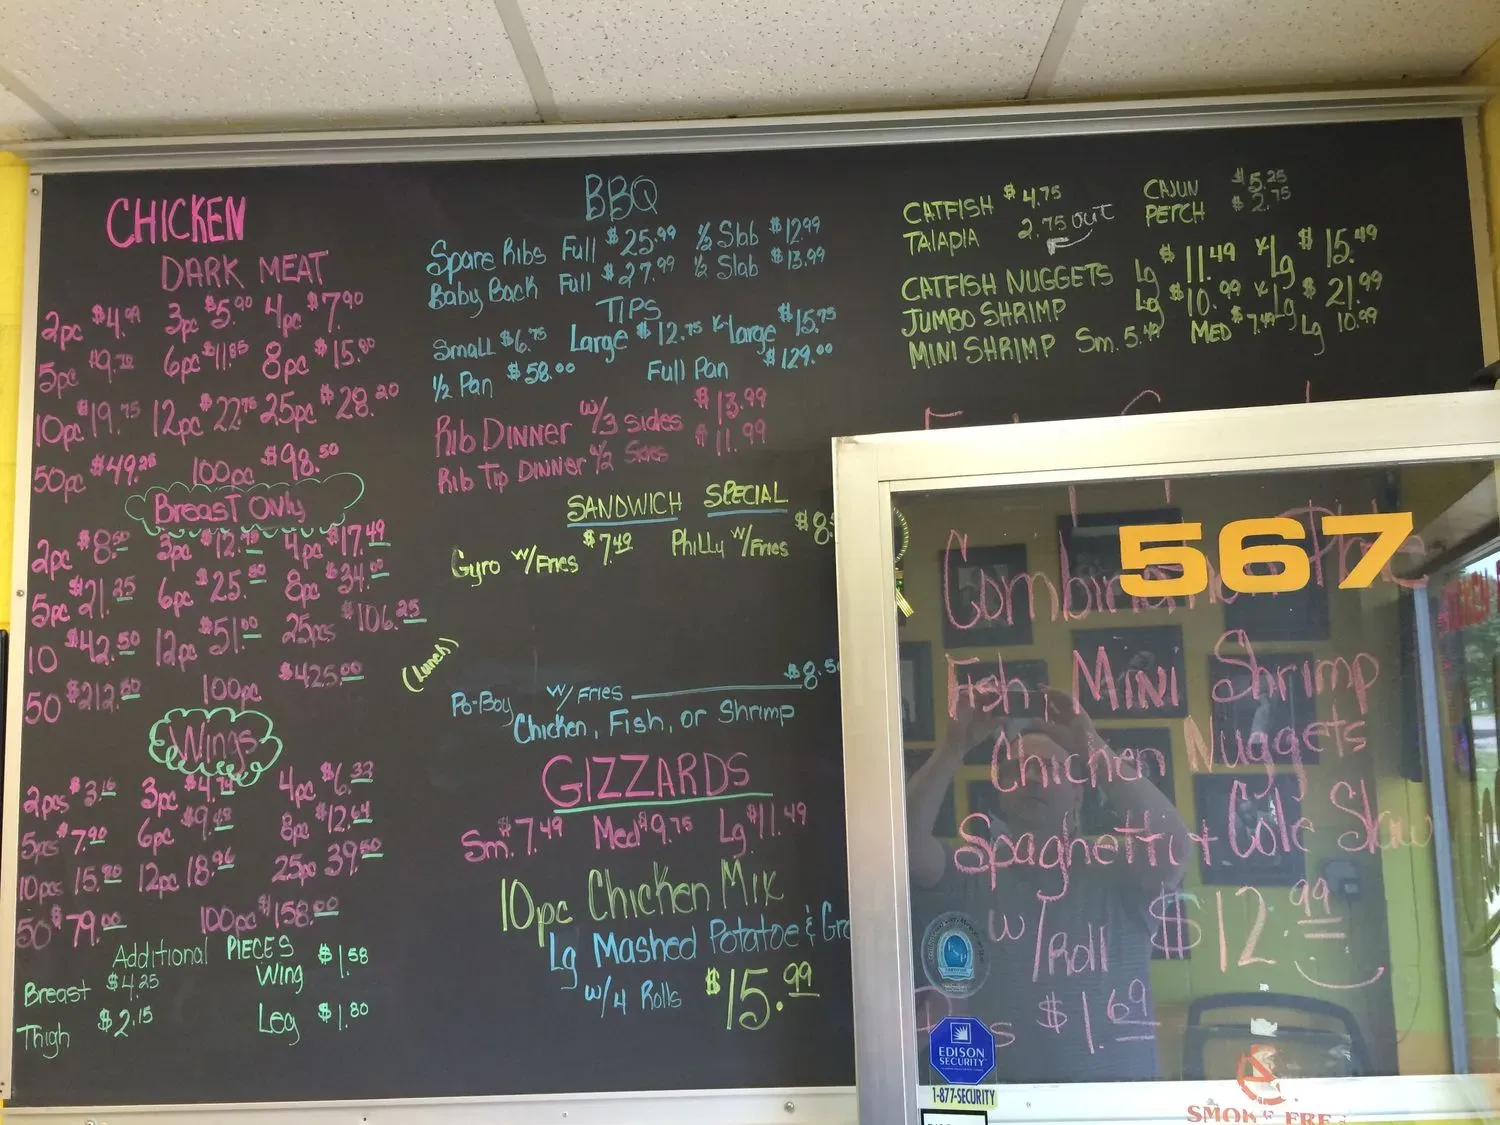 CHICKEN
DARK MEAT
2pc $4.99 3pc $5.90 4pc $7.90
5pc $9.70 6pc $11.85 8pc $15.80
10pc $19.75 12pc $22.75 25pc $28.20
50pc $49.25 100pc $98.50
Breast Only
2pc $8.50 3pc $12.79 4pc $17.49
5pc $21.25 6pc $25.50 8pc $34.00
10 $42.50 12pc $51.00 25pcs $106.25
50 $212.50 100pc $425.00
Wings
2pcs $3.16 3pc $4.74 4pc $6.32
5pcs $7.90 6pc $9.48 8pc $12.64
10pcs 15.80 12pc 18.96 25pc 39.50
50 $79.00 100pc $158.00
Additional PIECES
Breast $4.25 Wing $1.58
Thigh $2.15 Leg $1.80
BBQ
Spare Ribs Full $25.99 1/2 Slab $12.99
Baby Back Full $27.99 1/2 Slab $13.99
TIPS
Small $6.75 Large $12.75 X-Large $15.75
1/2 Pan $58.00 Full Pan $129.00
Rib Dinner w/3 sides $13.99
Rib Tip Dinner w/2 Sides $11.99
SANDWICH SPECIAL
Gyro w/Fries $7.49 Philly w/Fries $8.
(Lunch)
Po-Boy w/ Fries $8.50
Chicken, Fish, or Shrimp
GIZZARDS
Sm. $7.49 Med $9.75 Lg $11.49
10pc Chicken Mix
Lg Mashed Potatoe & Gra
w/4 Rolls $15.99
CATFISH $4.75 CAJUN $5.25
TALADIA 2.75 out PETCH $2.75
CATFISH NUGGETS Lg $11.49 X-Lg $15.49
JUMBO SHRIMP Lg $10.99 X-Lg $21.99
MINI SHRIMP Sm. 5.49 MED $7.49 Lg 10.99
567
Combination Plate
Fish, Mini Shrimp
Chicken Nuggets
Spaghetti + Cole Slaw
w/Roll $12.99
$1.69
EDISON
SECURITY
1-877-SECURITY
SMOKE FREE